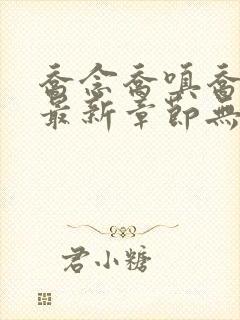 喬念喬嗔喬
最新章節無
君小糖